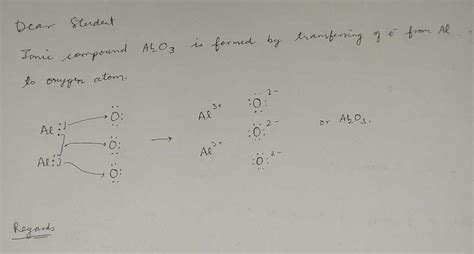 Dear Student
Ionic compound Al2O3 is formed by transferring of e⁻ from Al
to oxygen atom.
Al :· :Ö: Al³⁺ :Ö:²⁻
:Ö: → :Ö:²⁻ or Al2O3.
Al :· :Ö: Al³⁺ :Ö:²⁻
Regards